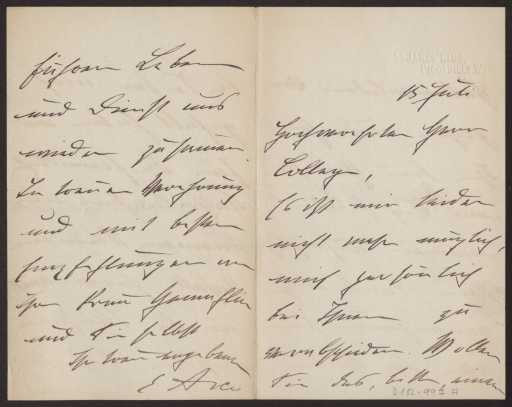 15 Juli
Herr
College,
Es ist mir leider
nicht mehr möglich,
mich persönlich
bei Ihnen zu
verabschieden. Wollen
Sie das, bitte,
Leben
und Dienst uns
wieder
In treuer Verehrung
und mit besten
Empfehlungen an
Ihre Frau Gemahlin
und Sie selbst
Ihr treu ergebener
E